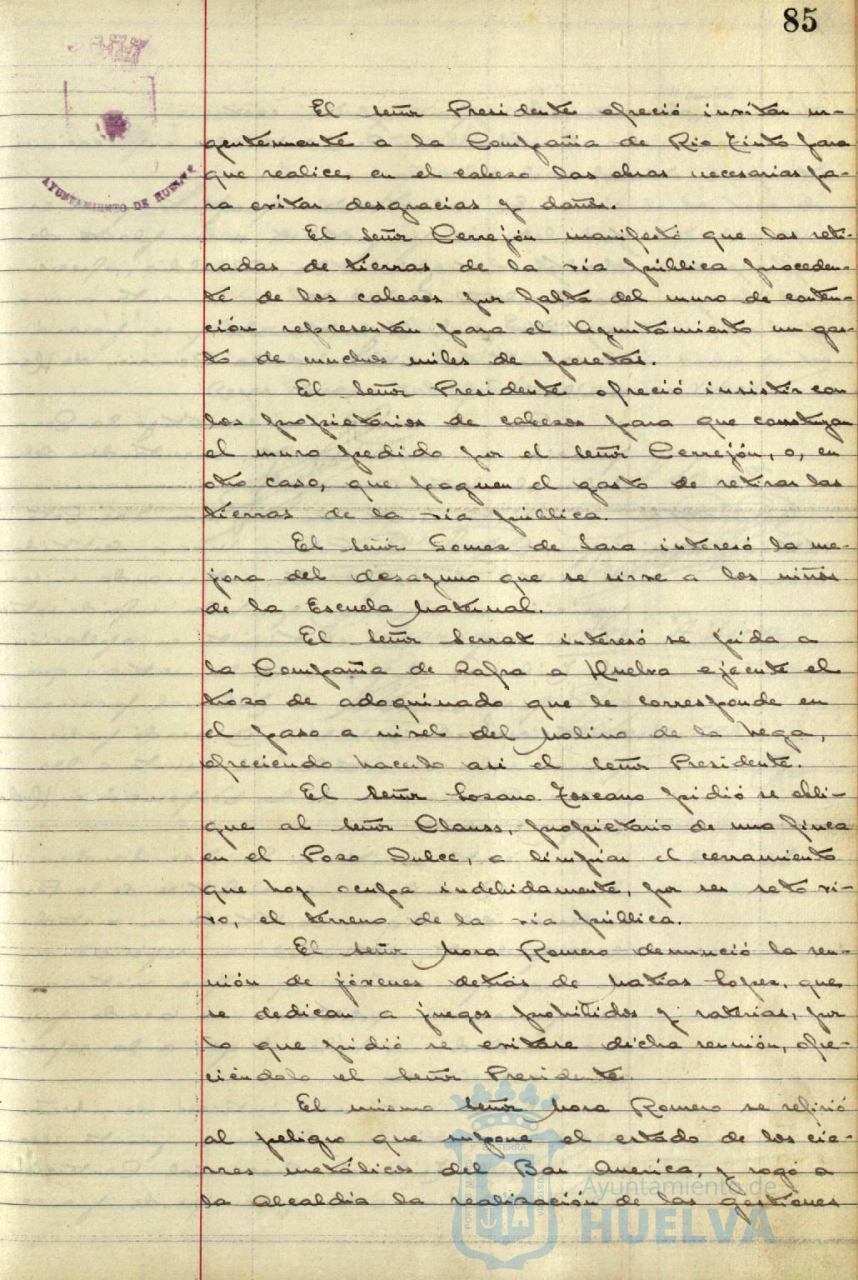 85
AYUNTAMIENTO DE HUELVA
El señor Presidente ofreció invitar ur-
gentemente a la Compañía de Rio Tinto para
que realice en el cabezo las obras necesarias pa-
ra evitar desgracias y daños.
El señor Cerrejón manifestó que las reti-
radas de tierras de la vía pública proceden-
te de los cabezos por falta del muro de conten-
ción representan para el Ayuntamiento un gas-
to de muchos miles de pesetas.
El señor Presidente ofreció insistir con
los propietarios de cabezos para que construyan
el muro pedido por el señor Cerrejón, o, en
otro caso, que paguen el gasto de retirar las
tierras de la vía pública.
El señor Gomez de Lara interesó la me-
jora del desayuno que se sirve a los niños
de la Escuela Maternal.
El señor Serrat interesó se pida a
la Compañía de Zafra a Huelva ejecute el
trozo de adoquinado que le corresponde en
el paso a nivel del Molino de la Vega,
ofreciendo hacerlo asi el señor Presidente.
El señor Lozano Toscano pidió se obli-
gue al señor Clauss, propietario de una finca
en el Pozo Dulce, a limpiar el cerramiento
que hoy ocupa indebidamente, por ser seto vi-
vo, el terreno de la vía pública.
El señor Mora Romero denunció la reu-
nión de jóvenes detrás de Matias Lopez, que
se dedican a juegos prohibidos y raterias, por
lo que pidió se evitase dicha reunión, ofre-
ciéndolo el señor Presidente.
El mismo señor Mora Romero se refirió
al peligro que supone el estado de los cie-
rres metálicos del Bar America, y rogó a
la Alcaldía la realización de las gestiones
Ayuntamiento de
HUELVA